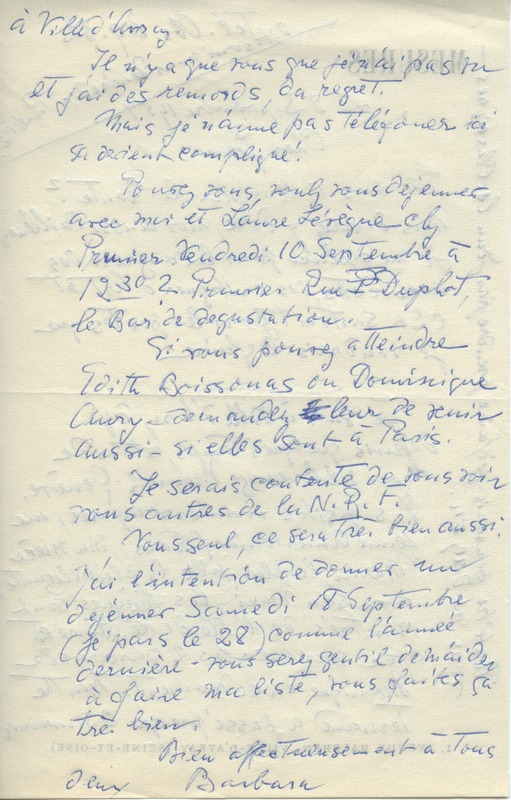 à Ville d'Avray.
Il n'y a que vous que je n'ai pas vu
et j'ai des remords, du regret.
Mais je n'aime pas téléfoner ici
sa devient compligué.
Pouvez vous, voulez vous dejeuner
avec moi et Laure Lévèque chez
Prunier Vendredi 10 Septembre à
12 30 ? Prunier Rue Duphot,
le Bar de degustation.
Si vous pouvez atteindre
Edith Boissonas ou Dominique
Aury - demandez leur de venir
aussi - si elles sont à Paris.
Je serais contente de vous voir
vous autres de la N.R.F.
Vous seul, ce sera très bien aussi.
J'ai l'intention de donner un
dejeuner Samedi 18 Septembre
(je pars le 28) comme l'année
dernière - vous serez gentil de m'aider
à faire ma liste, vous faites ça
très bien.
Bien affectueusement à Tous
deux Barbara